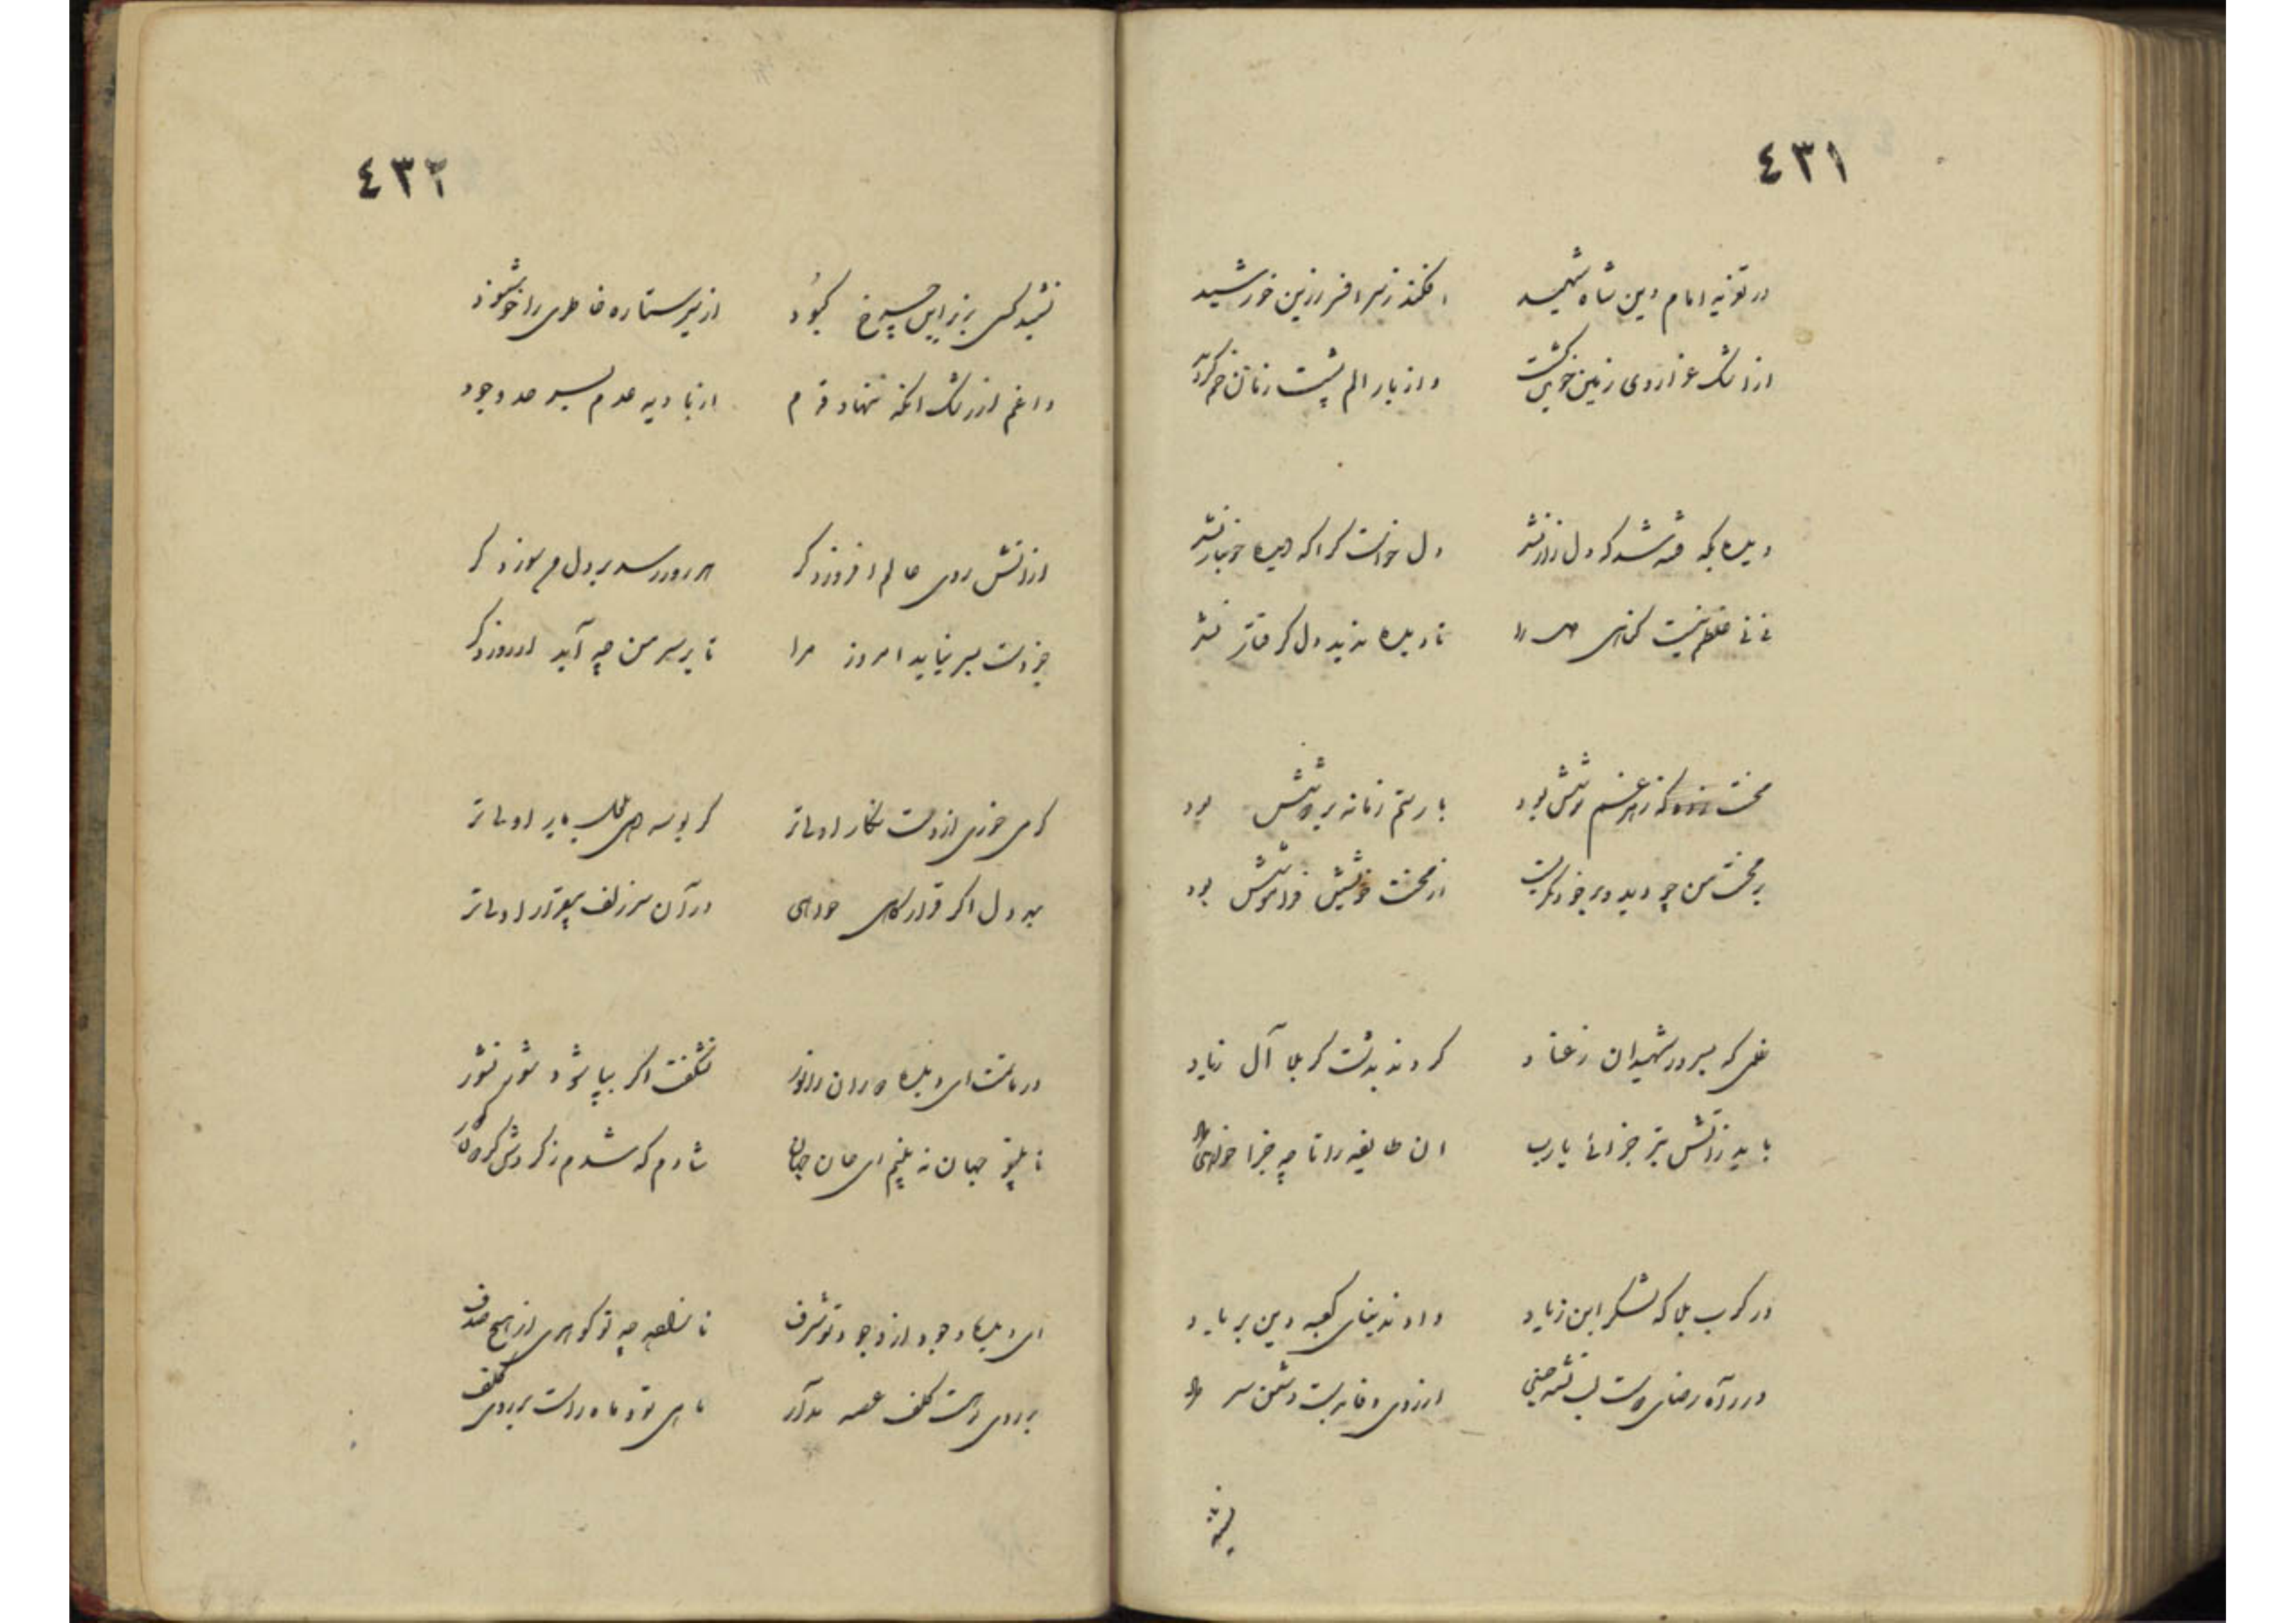 ٤٣١
در تعزیه امام دین شاه شهید افکند ز سر افسر زرین خورشید
از اشک عزا روی زمین جویی گشت واز بار الم پشت زمانه خم گردید
دیده بکه فتنه شد که دل زار نشد دل خواست کرا که دیده خونبار نشد
نی نی غلطم نیست گناهی را تا دیده ندید دل گرفتار نشد
محنت زده که زهر غم نوشش بود بار ستم زمانه بر دوشش بود
بر محنت من چو دید و بر خود نگریست از محنت خویش فراموشش بود
ظلمی که بسرور شهیدان ز عناد کردند بدشت کربلا آل زیاد
باید ز آتش تیز جزائی یارب ان طایفه را تا چه جزا خواهی داد
در کرب بلا که لشکر ابن زیاد دادند بنای کعبه دین بر باد
در راه رضای دوست لب تشنه حسین از روی وفا بدست دشمن سر داد
نشنید
٤٣٢
نشنید کسی بزیر این چرخ کبود از تیر ستاره خاطری را خوشنود
داغم از رشک آنکه ننهاد قدم از بادیه عدم بسر حد وجود
از آتش روی عالم افروز دگر هر روز رسد بر دل من سوز دگر
جز دست بسر نیاید امروز مرا تا بر سر من چه آید از روز دگر
گر می خوری از دست نگار اولیتر گر بوسه دهی بلب یار اولیتر
ای دل اگر قرارگاهی خواهی در آن سر زلف بیقرار اولیتر
در ماتمت ای دیده دوران را نور نشگفت اگر بپا شود شور نشور
تا بیتو جهان نه بینم ای جان جهان شادم که شدم ز گردش گردون کور
ای دیده وجود از وجود تو شرف نامد چه تو گوهری از هیچ صدف
بر روی کلف غصه مدار ماهی تو و ماه راست بر روی کلف